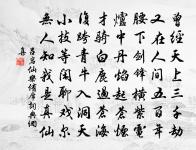 曾經天上三千劫
又在人間五百年
腰下劍鋒橫紫電
爐中丹焰起蒼煙
才騎白鹿過蒼海
復跨青牛入洞天
小技等閒聊戲爾
無人知我是真仙
呂岩仙樂侑席詞典網